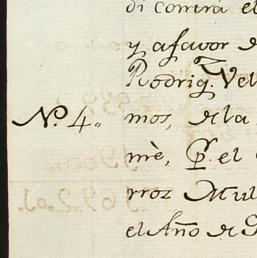 di contra el
y afavor d
Rodrig.z Vel
No. 4.. mos, de la
mè, P.r el C
rroz Mul
el Año de